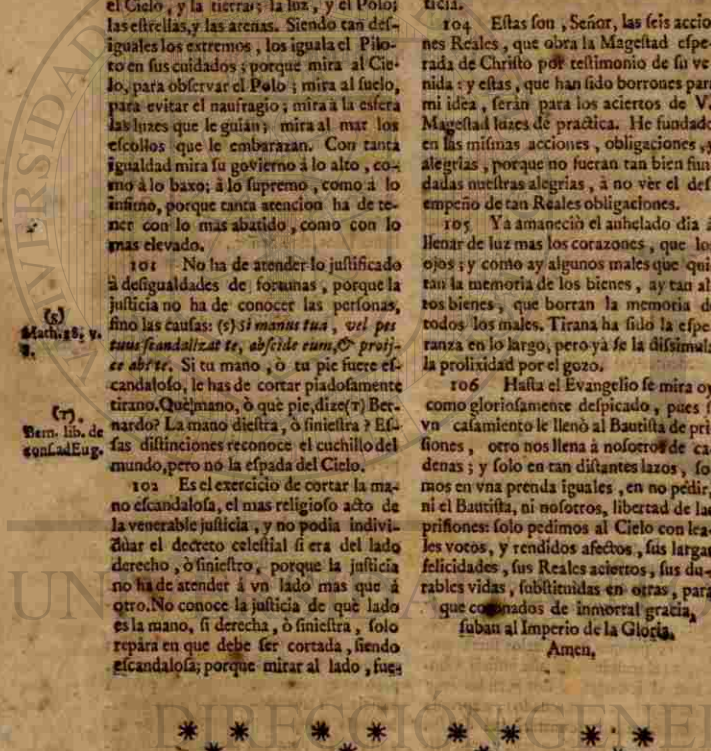 el Cielo, y la tierra; la luz, y el Polo;
las eſtrellas, y las arenas. Siendo tan deſ-
iguales los extremos, los iguala el Pilo-
to en ſus cuidados; porque mira al Cie-
lo, para obſervar el Polo; mira al ſuelo,
para evitar el naufragio; mira à la esfera
las luzes que le guian; mira al mar los
eſcollos que le embarazan. Con tanta
igualdad mira ſu govierno à lo alto, co-
mo à lo baxo; à lo ſupremo, como à lo
infimo, porque tanta atencion ha de te-
ner con lo mas abatido, como con lo
mas elevado.
101 No ha de atender lo juſtificado
à deſigualdades de fortunas, porque la
juſticia no ha de conocer las perſonas,
ſino las cauſas: (s) ſi manus tua, vel pes
tuus ſcandalizat te, abſcide eum, & proij-
ce abſ te. Si tu mano, ò tu pie fuere eſ-
candaloſo, le has de cortar piadoſamente
tirano. Què mano, ò què pie, dize (T) Ber-
nardo? La mano dieſtra, ò ſinieſtra? Eſ-
ſas diſtinciones reconoce el cuchillo del
mundo, pero no la eſpada del Cielo.
102 Es el exercicio de cortar la ma-
no eſcandaloſa, el mas religioſo acto de
la venerable juſticia, y no podia indivi-
duar el decreto celeſtial ſi era del lado
derecho, ò ſinieſtro, porque la juſticia
no ha de atender à vn lado mas que à
otro. No conoce la juſticia de què lado
es la mano, ſi derecha, ò ſinieſtra, ſolo
repàra en que debe ſer cortada, ſiendo
eſcandaloſa; porque mirar al lado, fue-
(s)
Math. 18. v.
8.
(T)
Bern. lib. de
conſ. ad Eug.
ticia.
104 Eſtas ſon, Señor, las ſeis accio
nes Reales, que obra la Mageſtad eſpe-
rada de Chriſto por teſtimonio de ſu ve
nida: y eſtas, que han ſido borrones para
mi idea, ſeràn para los aciertos de V.
Mageſtad luzes de practica. He fundado
en las miſmas acciones, obligaciones, y
alegrias, porque no fueran tan bien fun
dadas nueſtras alegrias, à no vèr el deſ
empeño de tan Reales obligaciones.
105 Ya amaneciò el anhelado dia à
llenar de luz mas los corazones, que los
ojos; y como ay algunos males que qui
tan la memoria de los bienes, ay tan al
tos bienes, que borran la memoria de
todos los males. Tirana ha ſido la eſpe
ranza en lo largo, pero yà ſe la diſsimula
la prolixidad por el gozo.
106 Haſta el Evangelio ſe mira oy
como glorioſamente deſpicado, pues ſ
vn caſamiento le llenò al Bautiſta de pri
ſiones, otro nos llena à noſotros de ca
denas; y ſolo en tan diſtantes lazos, ſo
mos en vna prenda iguales, en no pedir,
ni el Bautiſta, ni noſotros, libertad de las
priſiones: ſolo pedimos al Cielo con lea-
les votos, y rendidos afectos, ſus largas
felicidades, ſus Reales aciertos, ſus du-
rables vidas, ſubſtituidas en otras, para
que coronados de inmortal gracia,
ſuban al Imperio de la Gloria.
Amen.
DIRECCIÓN GENE